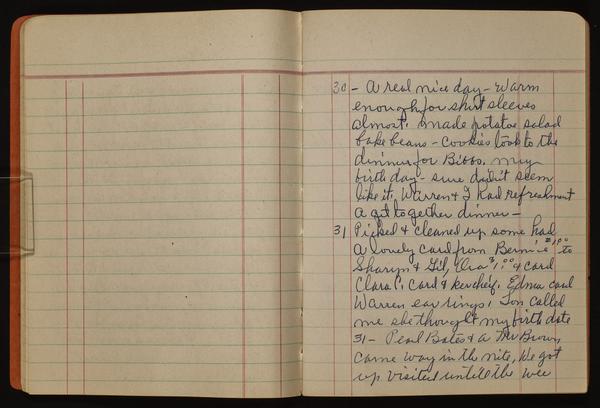 30 - A real nice day - Warm
enough for shirt sleeves
almost. Made potatoe salad
bake beans - Cookies took to the
dinner for Bibbs. My
birthday - sure didn't seem
like it. Warren & I had refreshment
A git together dinner -
31 Picked & cleaned up some had
a lovely card from Bernie $1.00 to
Sharyn & Gil, Ora $1.00 & card
Clara P. Card & kerchief. Edna card
Warren ear rings, Ion called
me she thought my birth date
31 - Pearl Bates & a Mr Brown
came way in the nite, We got
up visited untill the wee